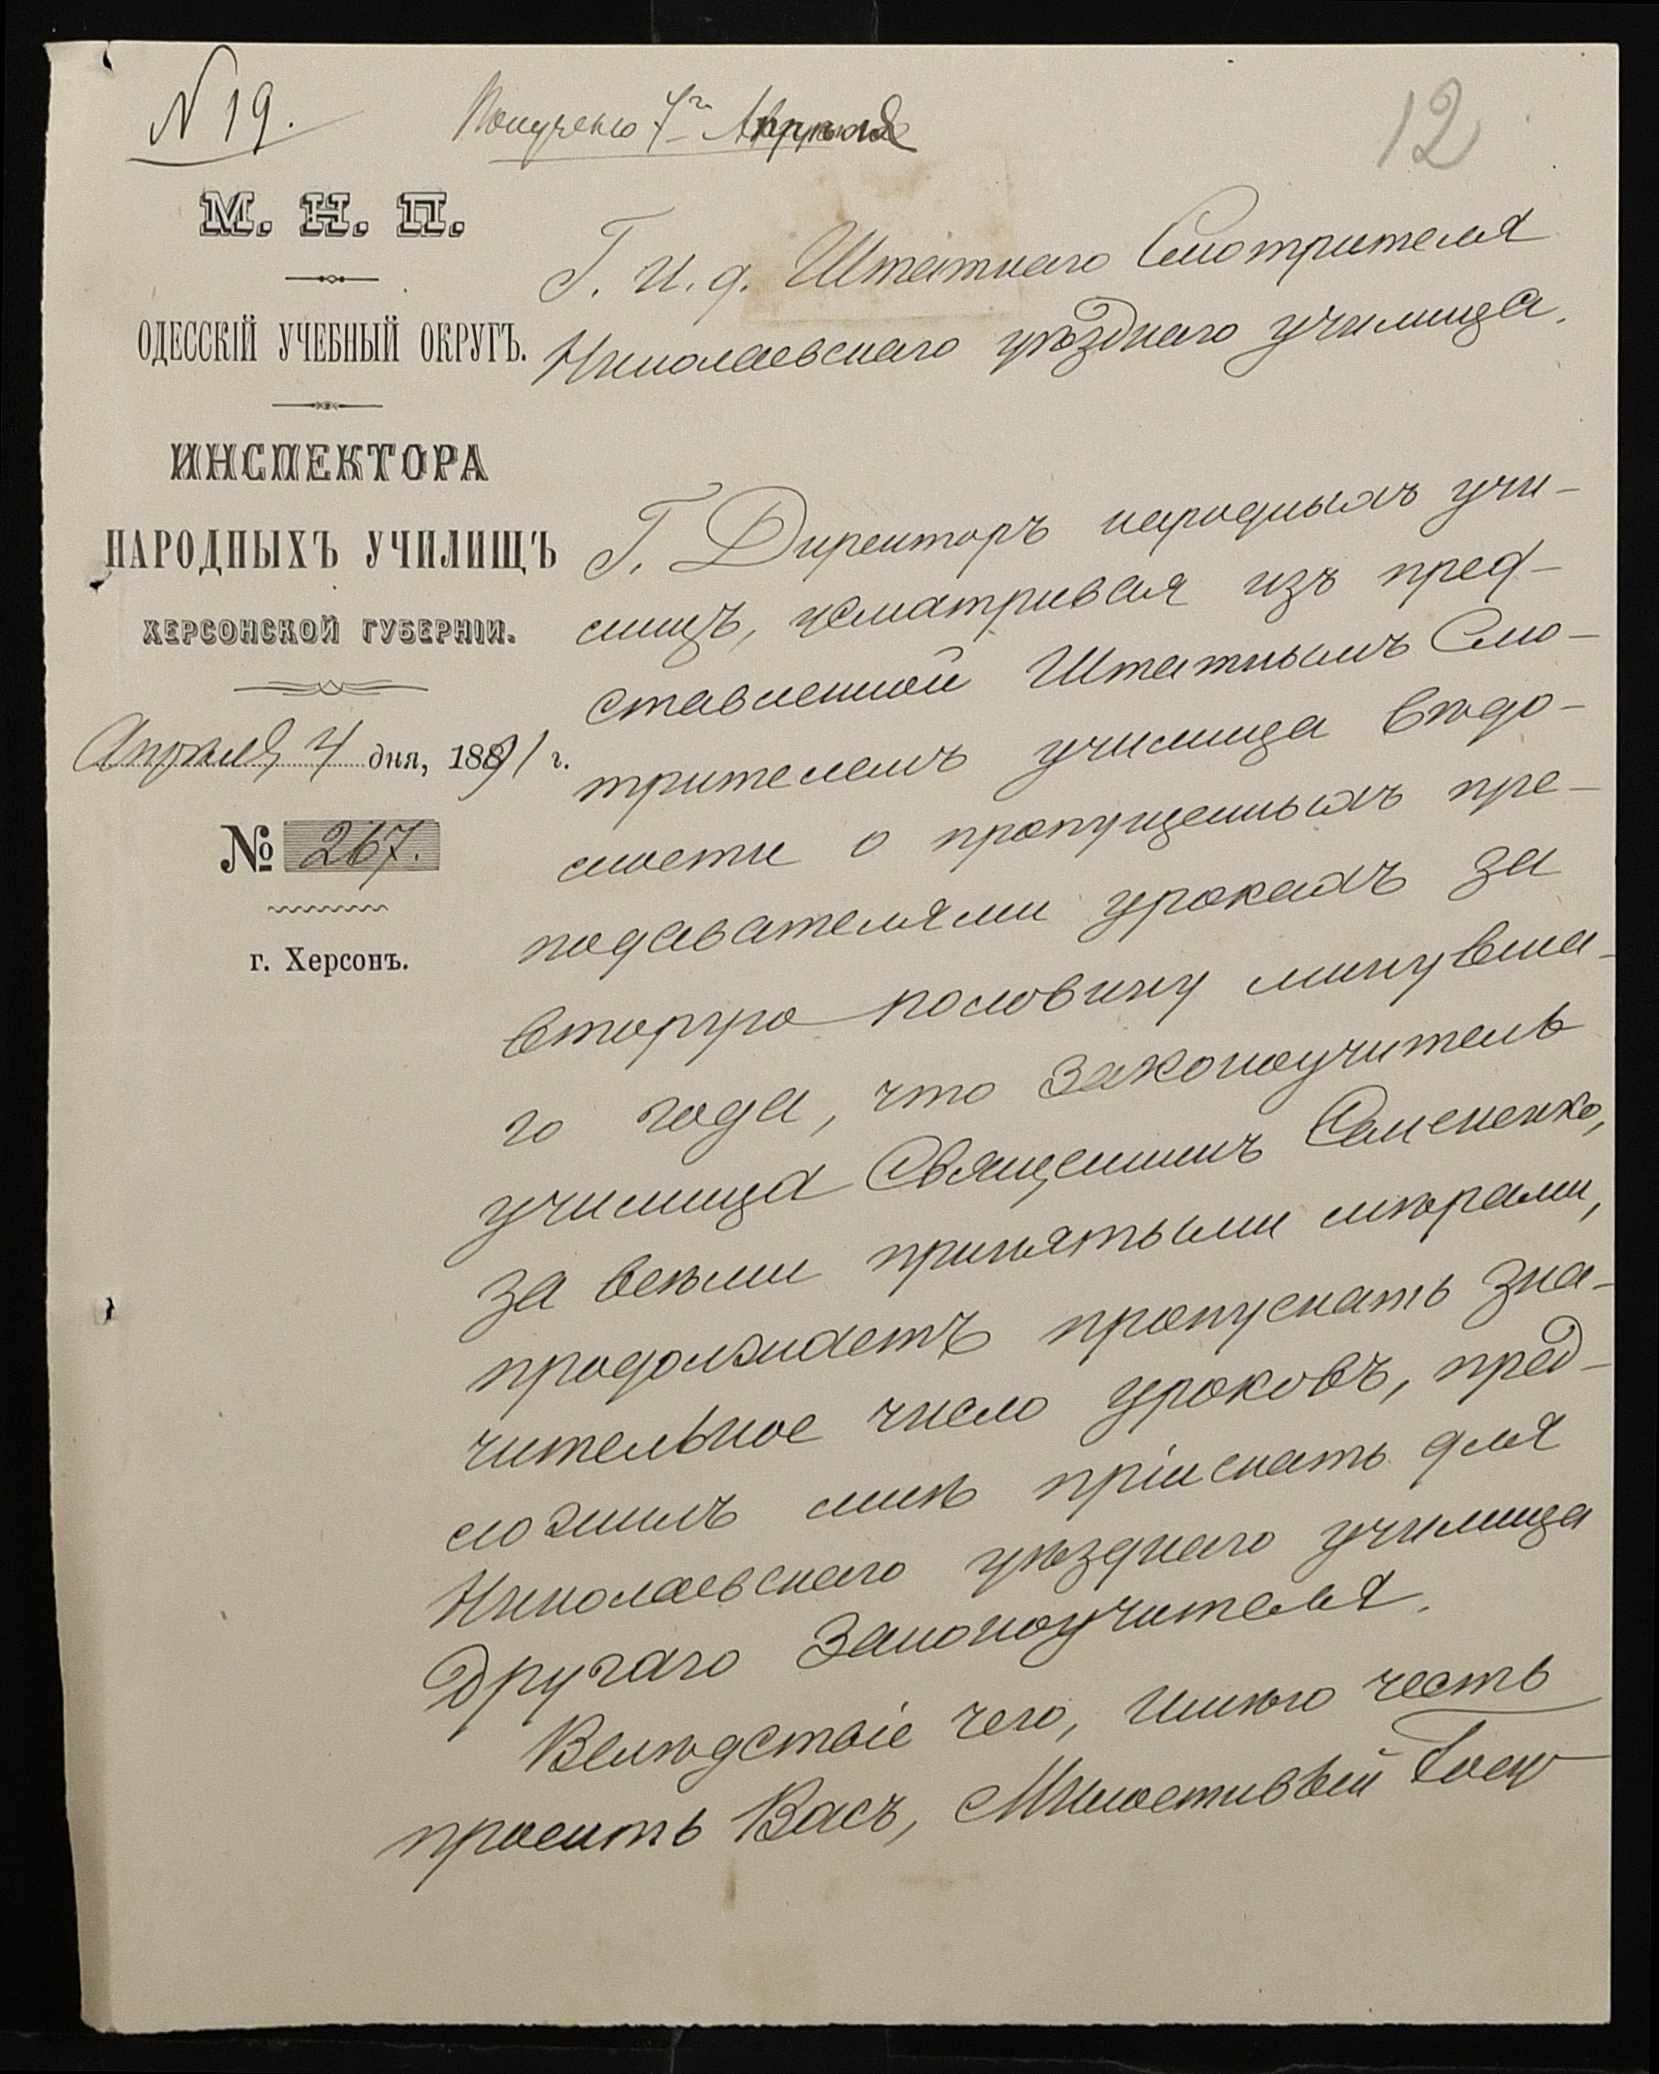 N 19.
Получено 7го Апрѣля
12
М. Н. П.
ОДЕССКІЙ УЧЕБНЫЙ ОКРУГЪ.
ИНСПЕКТОРА
НАРОДНЫХЪ УЧИЛИЩЪ
ХЕРСОНСКОЙ ГУБЕРНІИ.
Апрѣля 4 дня, 1891 г.
№ 267.
г. Херсонъ.
Г. И. д. Штатнаго Смотрителя
Николаевскаго уѣзднаго училища.
Г. Директоръ народныхъ учи-
лищъ, усматривая изъ пред-
ставленной Штатнымъ Смо-
трителемъ училища вѣдо-
мости о пропущенныхъ пре-
подавателями урокахъ за
вторую половину минувша-
го года, что законоучитель
училища Священникъ Семененко,
за всѣми принятыми мѣрами,
продолжаетъ пропускать зна-
чительное число уроковъ, пред-
ложилъ мнѣ пріискать для
Николаевскаго уѣзднаго училища
другаго законоучителя.
Вслѣдствіе чего, имѣю честь
просить Васъ, Милостивый Госу-